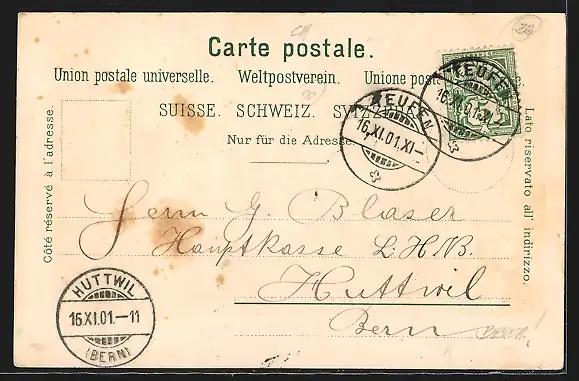 Carte postale.
Union postale universelle. Weltpostverein. Unione post
SUISSE. SCHWEIZ. SVIZZERA.
Nur für die Adresse
Côté réservé à l'adresse.
Lato riservato all' indirizzo.
TEUFEN
16.XI.01.XI–
TEUFEN
16.XI.01.XI–
5
Herrn G. Blaser
Hauptkasse L.H.B.
Huttwil
Bern
HUTTWIL
16.XI.01.–11
(BERN)